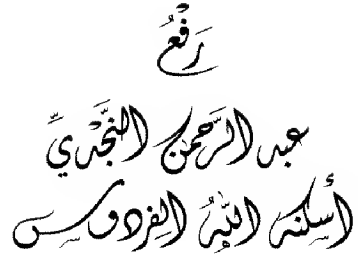 رَفْعُ
عبد الرَّحمن النَّجْدِيِّ
أسكنه اللهُ الفِردوس